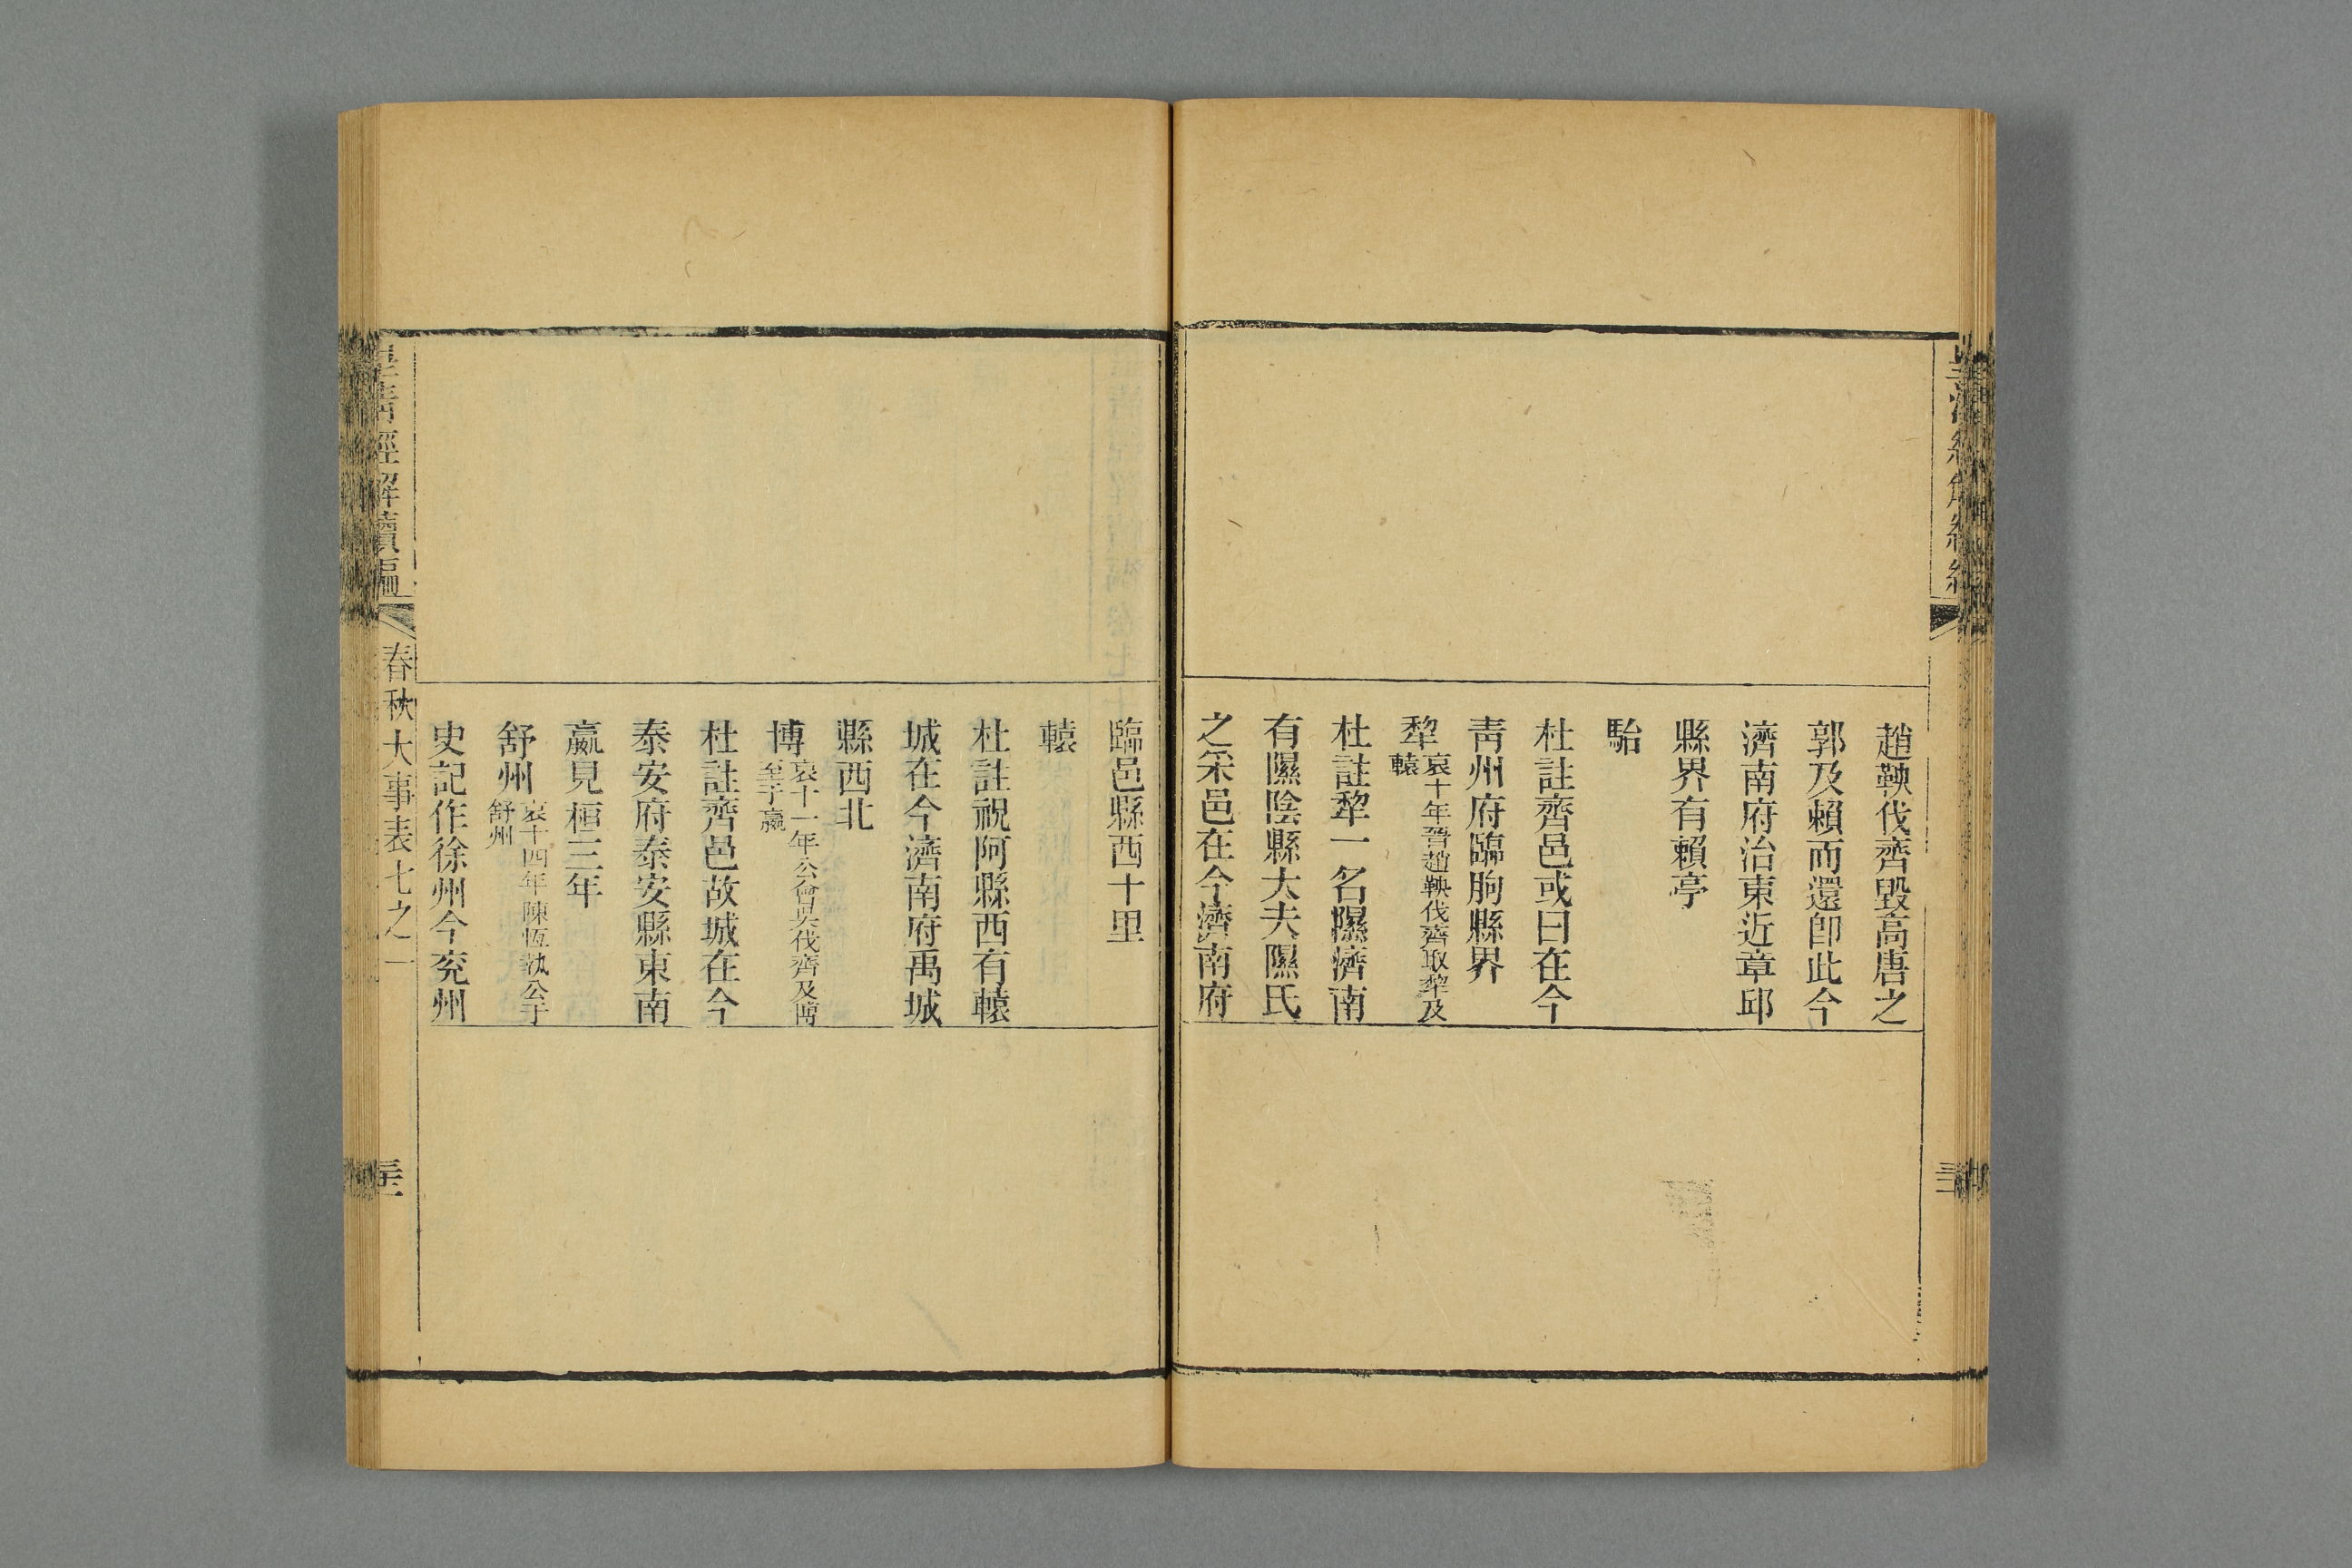 趙鞅伐齊毀高唐之
郭及賴而還卽此今
濟南府治東近章邱
縣界有賴亭
駘
杜註齊邑或曰在今
靑州府臨朐縣界
犂哀十年晉趙鞅伐齊取犂及轅
杜註犂一名隰濟南
有隰陰縣大夫隰氏
之采邑在今濟南府
臨邑縣西十里
轅
杜註祝阿縣西有轅
城在今濟南府禹城
縣西北
博哀十一年公會吳伐齊及博至于嬴
杜註齊邑故城在今
泰安府泰安縣東南
嬴見桓三年
舒州哀十四年陳恆執公于舒州
史記作徐州今兗州
皇淸經解續編
春秋大事表七之一